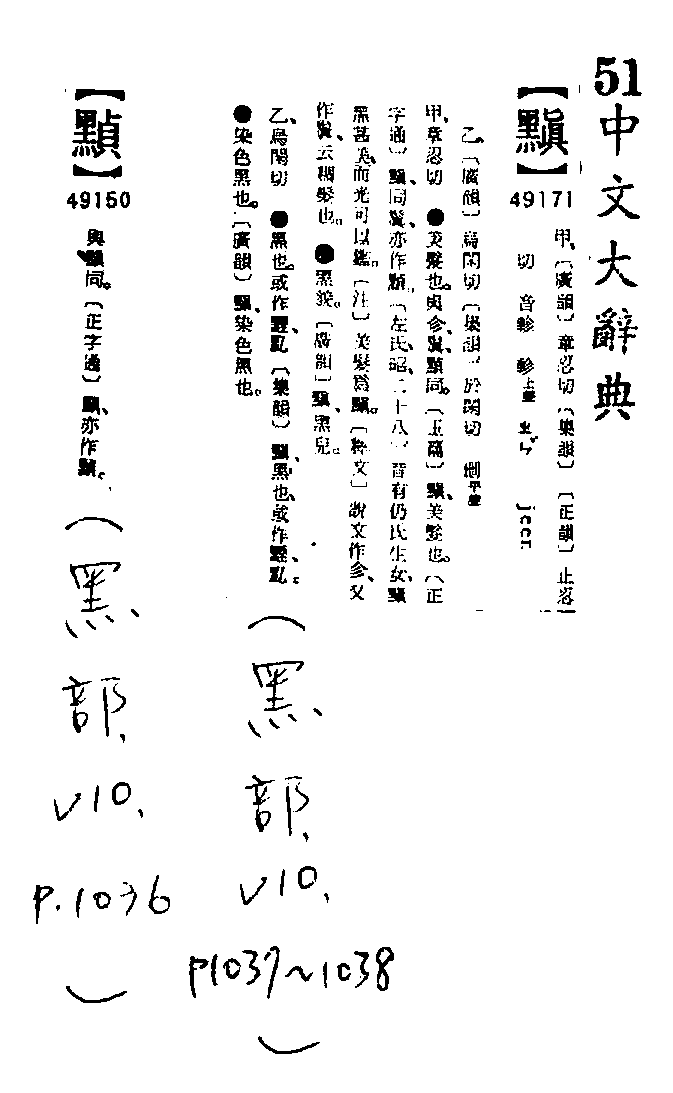 51中文大辭典
【黰】
49171
甲、〔廣韻〕章忍切〔集韻〕〔正韻〕止忍
切 音軫 軫上聲 ㄓㄣˇ jeen
乙、〔廣韻〕烏閑切〔集韻〕於閑切 刪平聲
甲、章忍切 ●美髮也。與㐱、鬒、黰同。〔玉篇〕黰、美髮也。〔正
字通〕黰、同鬒、亦作䫃。〔左氏、昭、二十八〕昔有仍氏生女、黰
黑甚美、而光可以鑑。〔注〕美髮爲黰。〔釋文〕說文作㐱、又
作鬒、云稠髮也。 ●黑貌。〔廣韻〕黰、黑皃。
乙、烏閑切 ●黑也。或作黫、䵣。〔集韻〕黰、黑也、或作黫、䵣。
●染色黑也。〔廣韻〕黰、染色黑也。
(黑部、
v10、
p1037~1038
)
49150
與黰同。〔正字通〕黰、亦作
(黑部、
v10、
p.1036
)